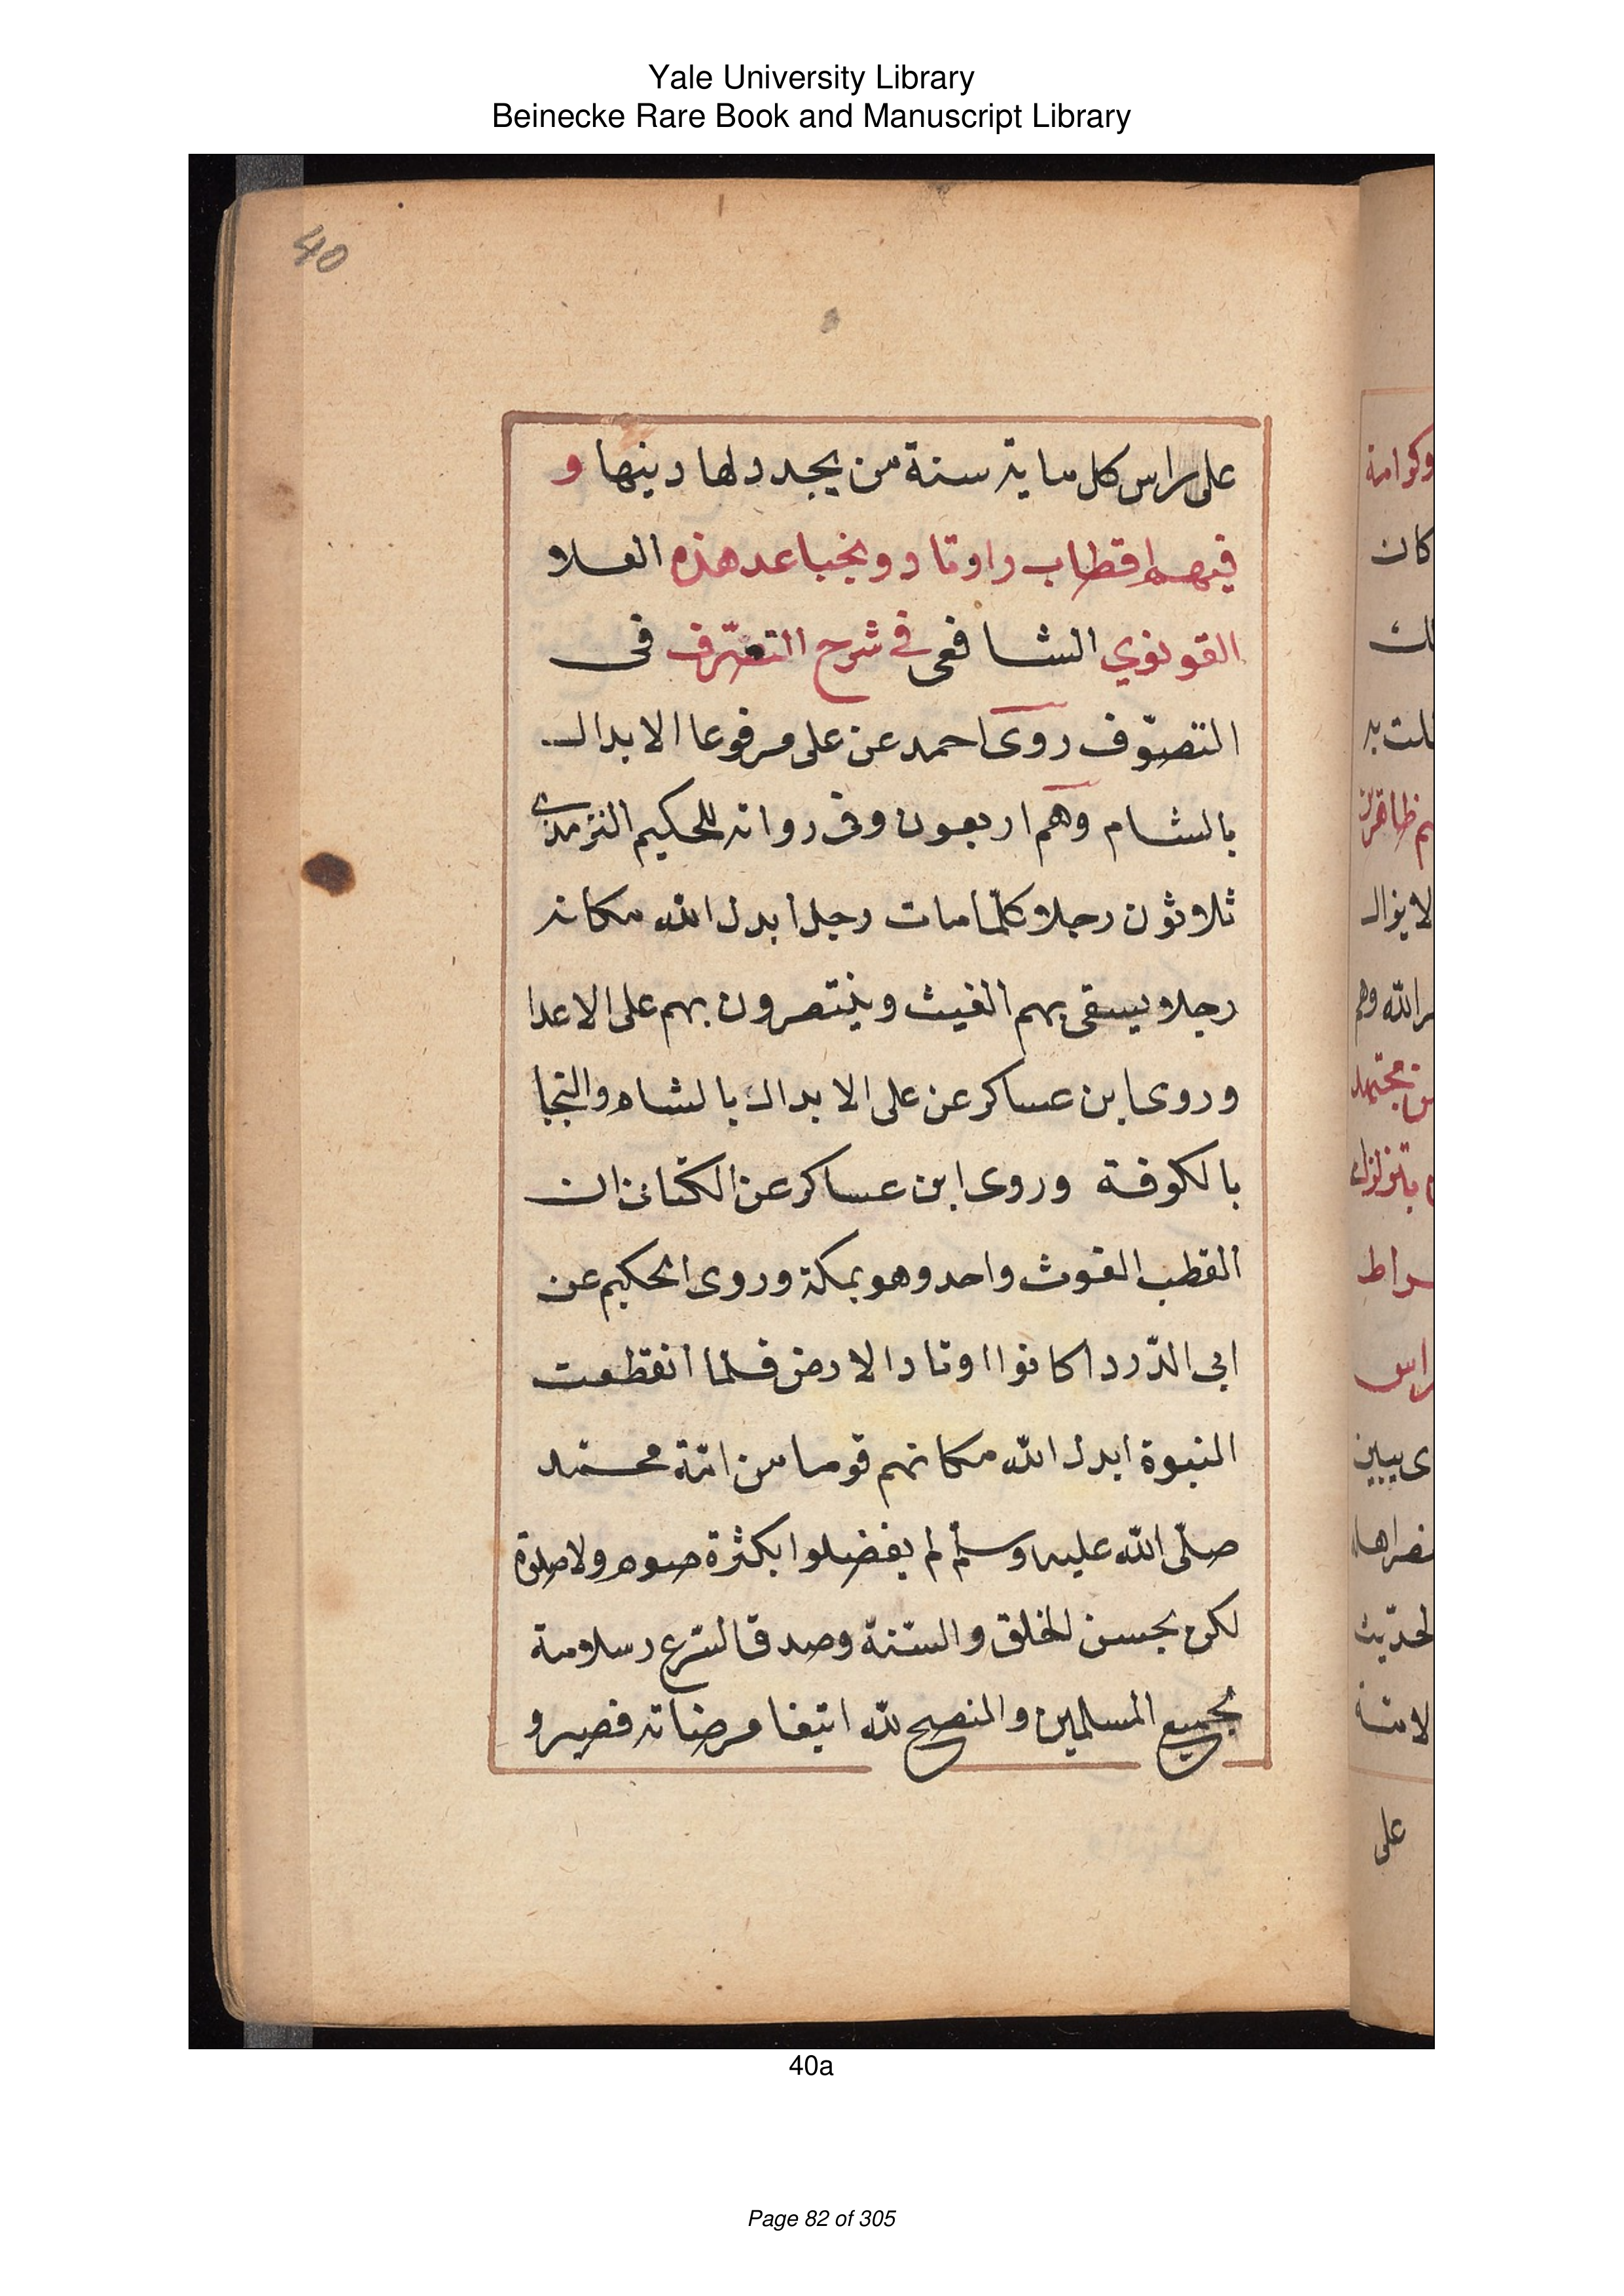 Yale University Library
Beinecke Rare Book and Manuscript Library
40
على راس كل ماية سنة من يجدد لها دينها و
فيهم اقطاب واوتاد ونجبا عد هذه العلا
القونوي الشافعى في شرح التعرّف فى
التصوّف روى احمد عن على مرفوعا الابدال
بالشام وهم اربعون وفى رواية للحكيم الترمذى
ثلاثون رجلا كلّما مات رجل ابدل الله مكانه
رجلا يسقى بهم الغيث وينتصرون بهم على الاعدا
وروى ابن عساكر عن على الابدال بالشام والنجبا
بالكوفة وروى ابن عساكر عن الكتانى ان
القطب الغوث واحد وهو بمكة وروى الحكيم عن
ابى الدّردا كانوا اوتاد الارض فلمّا انقطعت
النبوة ابدل الله مكانهم قوما من امّة محمّد
صلّى الله عليه وسلّم لم يفضلوا بكثرة صوم ولا صلوة
لكن بحسن الخلق والسّنة وصدق الشرع وسلامة
بجميع المسلمين والنصيح لله ابتغا مرضاته فصيرو
وكرامة
كان
لا يزال
راس
على
40a
Page 82 of 305